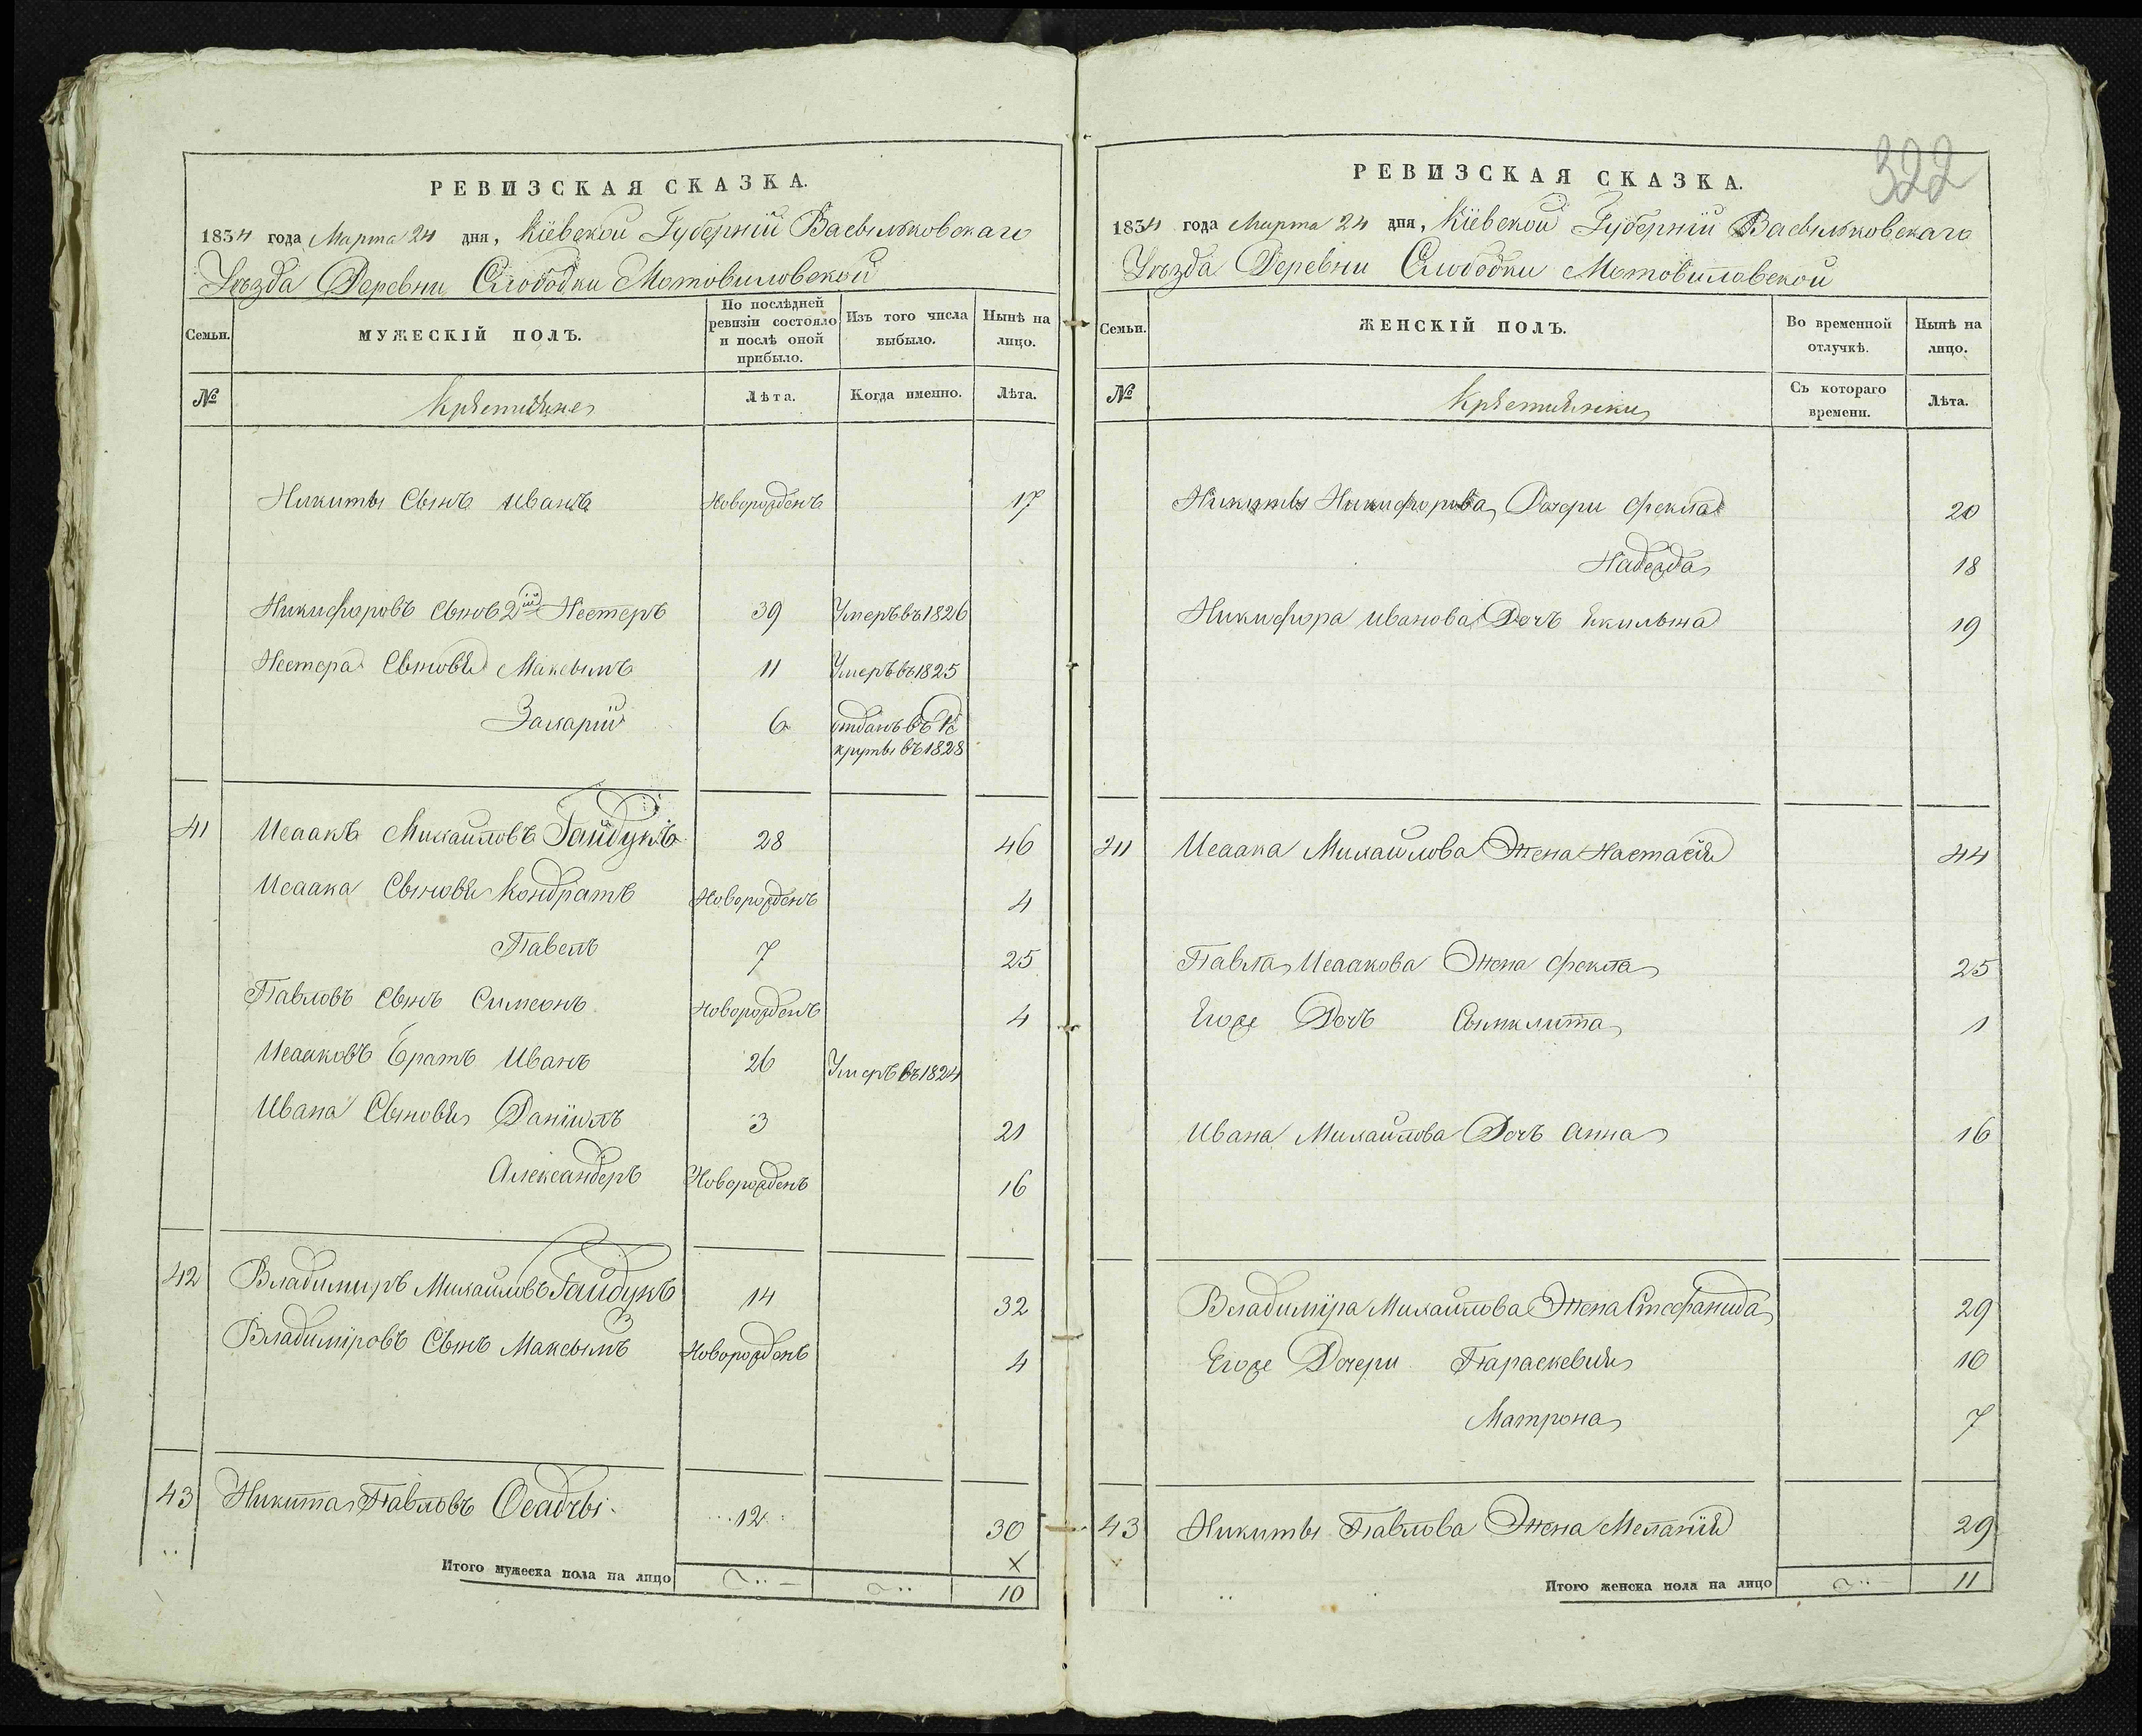 РЕВИЗСКАЯ СКАЗКА.
1834 года Марта 24 дня, Кіевской Губерніи Васыльковскаго
Уѣзда Деревни Слободки Мотовиловской
Семьи. МУЖЕСКІЙ ПОЛЪ. По послѣдней ревизіи состояло и послѣ оной прибыло. Изъ того числа выбыло. Нынѣ на лицо.
№ Крѣстьяне Лѣта. Когда именно. Лѣта.
Никиты Сынъ Иванъ Новорожденъ 17
Никифоровъ Сынов 2ій Нестеръ 39 Умеръ въ 1826
Нестера Сыновья Максымъ 11 Умеръ въ 1825
Захарій 6 отданъ въ Ре
круты въ 1828
41 Исаакъ Михайловъ Гайдукъ 28 46
Исаака Сыновья Кондратъ Новорожденъ 4
Павелъ 7 25
Павловъ Сынъ Симеонъ Новорожденъ 4
Исааковъ Братъ Иванъ 26 Умеръ въ 1824
Ивана Сыновья Даніилъ 3 21
Александеръ Новорожденъ 16
42 Владимиръ Михайловъ Гайдукъ 14 32
Владиміровъ Сынъ Максымъ Новорожденъ 4
43 Никита Павловъ Осадчы 12 30
Итого мужеска пола на лицо 10
322
РЕВИЗСКАЯ СКАЗКА.
1834 года Марта 24 дня, Кіевской Губерніи Васыльковскаго
Уѣзда Деревни Слободки Мотовиловской
Семьи. ЖЕНСКІЙ ПОЛЪ. Во временной отлучкѣ. Нынѣ на лицо.
№ Крѣстьянки Съ котораго времени. Лѣта.
Никиты Никифорова Дочери Фекла 20
Надежда 18
Никифора Иванова Дочъ Якильна 19
41 Исаака Михайлова Жена Настасія 44
Павла Исаакова Жена Фекла 25
Егоже Дочъ Сынклита 1
Ивана Михайлова Дочъ Анна 16
Владиміра Михайлова Жена Стефанида 29
Егоже Дочери Параскевия 10
Матрона 7
43 Никиты Павлова Жена Меланія 29
Итого женска пола на лицо 11